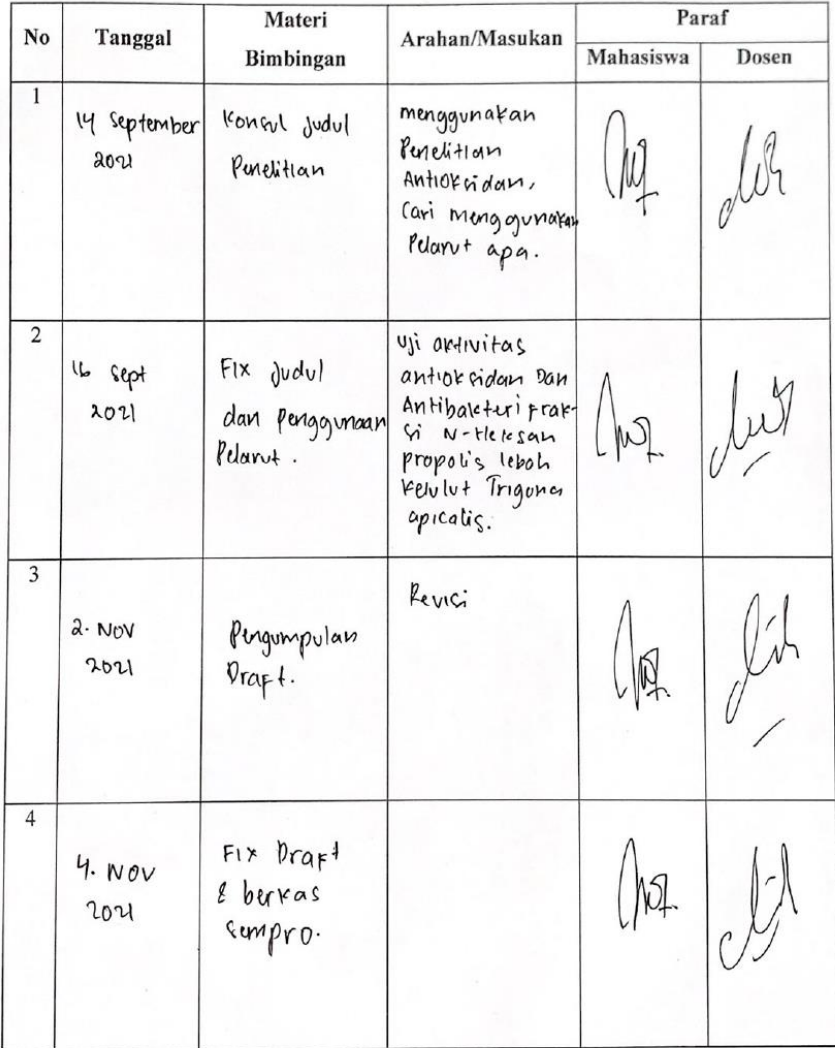 No Tanggal Materi Bimbingan Arahan/Masukan Paraf
Mahasiswa Dosen
1
14 September
2021
Konsul Judul
Penelitian
menggunakan
Penelitian
Antioksidan,
Cari menggunakan
Pelarut apa.
2
16 Sept
2021
Fix Judul
dan Penggunaan
Pelarut.
Uji aktivitas
antioksidan Dan
Antibakteri Frak-
si N-Heksan
propolis leboh
Kelulut Trigona
apicalis.
3
2. Nov
2021
Pengumpulan
Draft.
Revisi
4
4. Nov
2021
Fix Draft
& berkas
sempro.